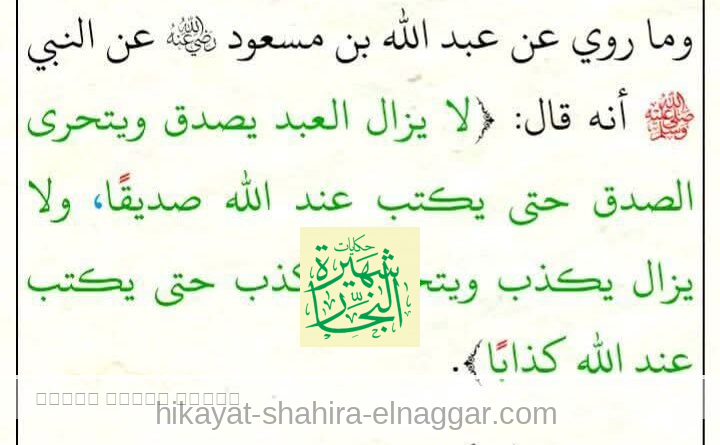 وما روي عن عبد الله بن مسعود ﵁ عن النبي
ﷺ أنه قال: ﴿لا يزال العبد يصدق ويتحرى
الصدق حتى يكتب عند الله صديقًا، ولا
يزال يكذب ويتح كذب حتى يكتب
عند الله كذابًا﴾.
حكايات
شهيرة
النجار
hikayat-shahira-elnaggar.com